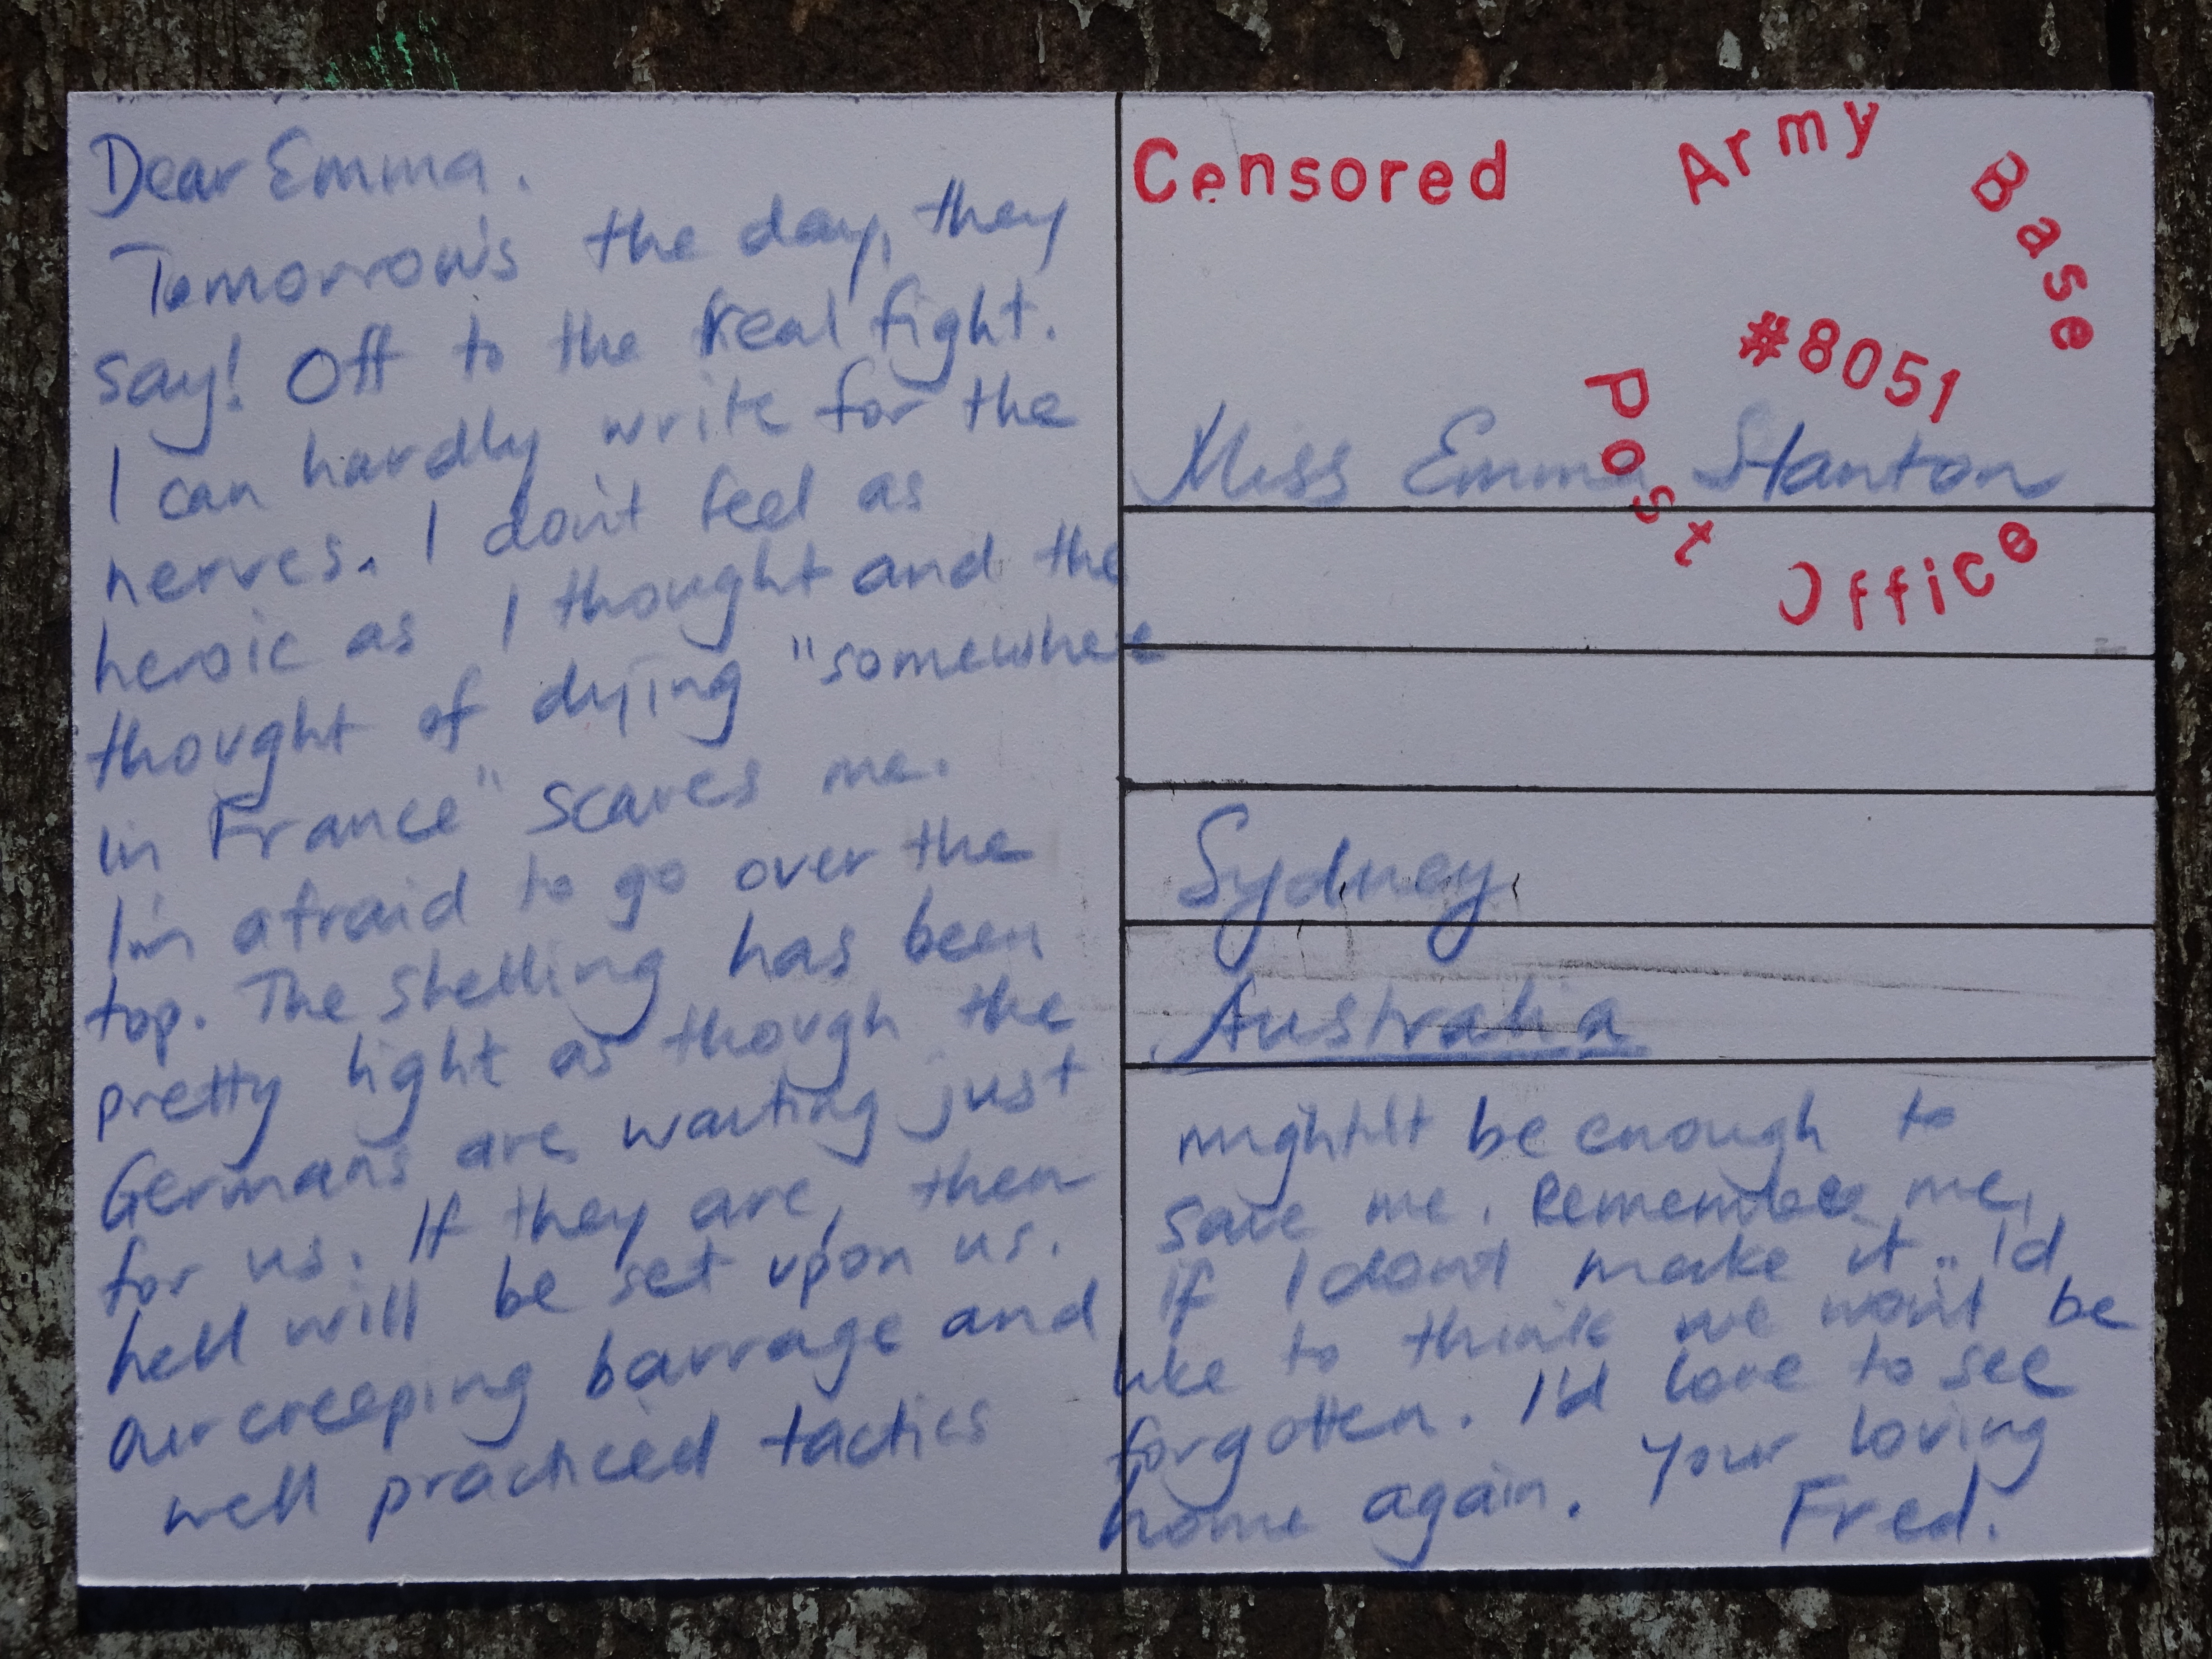 Dear Emma.
Tomorrow's the day, they
say! Off to the real fight.
I can hardly write for the
nerves. I don't feel as
heroic as I thought and the
thought of dying "somewhere
in France" scares me.
I'm afraid to go over the
top. The shelling has been
pretty light as though the
Germans are waiting just
for us. If they are, then
hell will be set upon us.
Our creeping barrage and
well practiced tactics
Censored
Army Base
#8051
Post Office
Miss Emma Stanton
Sydney
Australia
might'lt be enough to
save me. Remember me,
if I don't make it.. I'd
like to think we won't be
forgotten. I'd love to see
home again. Your loving
Fred.